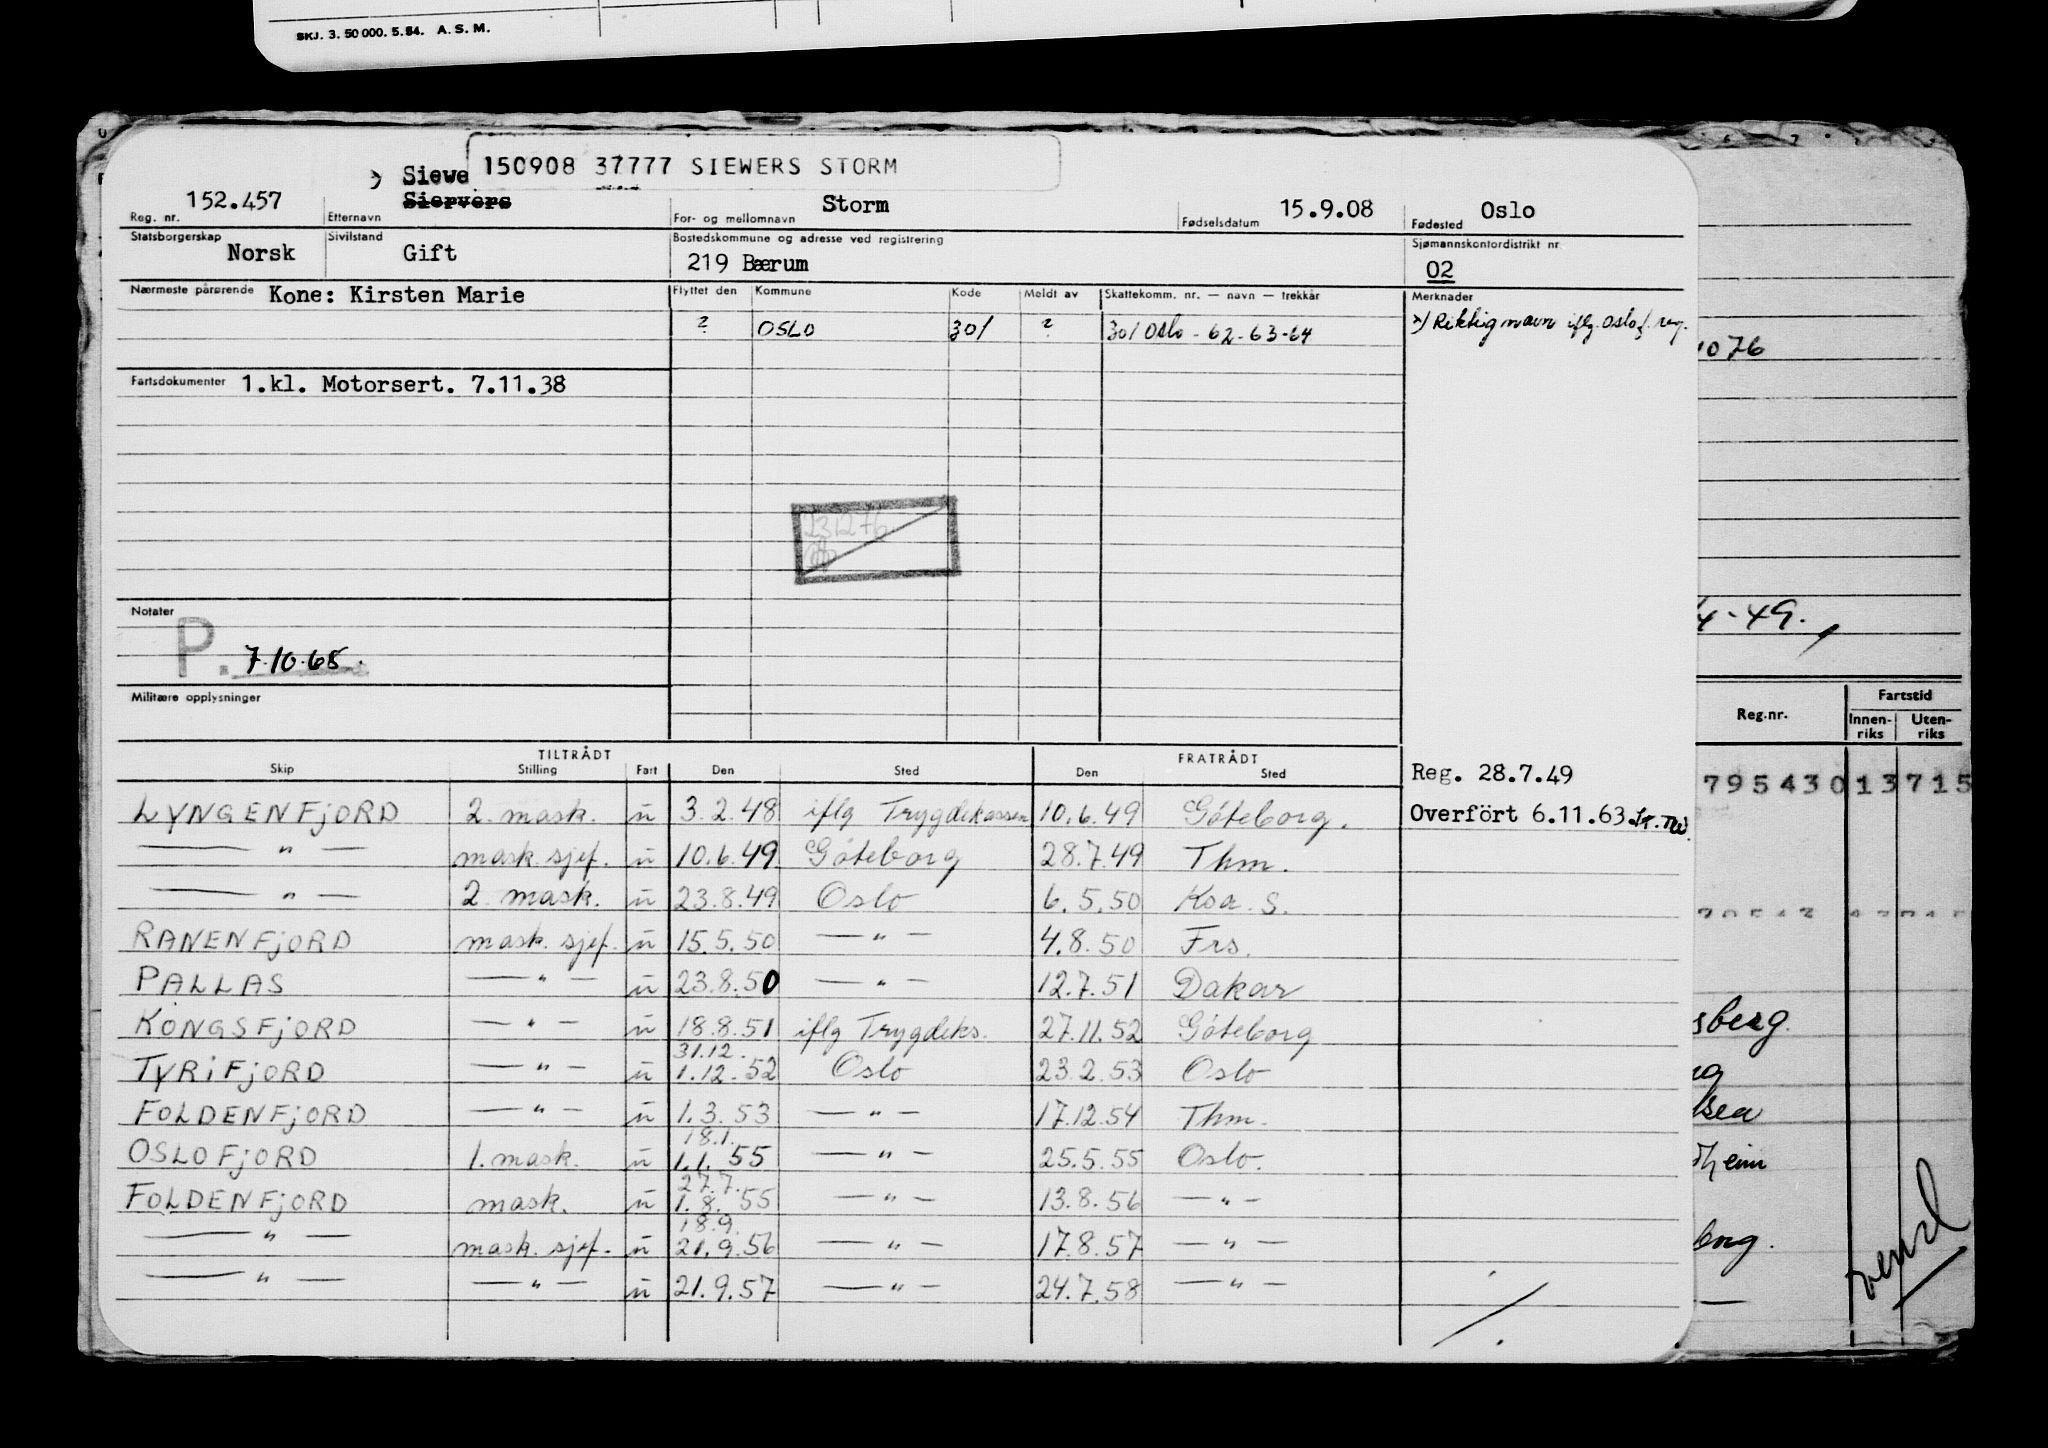 SKJ. 3. 50 000. 5. 54. A. S. M.
150908 37777 SIEWERS STORM
x) Siewe
152.457 Siervers Storm 15.9.08 Oslo
Reg. nr. Etternavn For- og mellomnavn Fødselsdatum Fødested
Statsborgerskap Sivilstand Bostedskommune og adresse ved registrering Sjømannskontordistrikt nr.
Norsk Gift 219 Bærum 02
Nærmeste pårørende Kone: Kirsten Marie Flyttet den Kommune Kode Meldt av Skattekomm. nr. — navn — trekkår Merknader
? OSLO 301 ? 301 Oslo - 62-63-64 x) Riktig navn iflg. Oslo f. reg.
1076
Fartsdokumenter 1.kl. Motorsert. 7.11.38
231276
Notater
P. 7.10.65.
4-49.
Militære opplysninger
Reg.nr. Fartstid
Innenriks Utenriks
TILTRÅDT FRATRÅDT
Skip Stilling Fart Den Sted Den Sted
Reg. 28.7.49
795430 13715
LYNGENFJORD 2. mask. u 3.2.48 iflg Trygdekassen 10.6.49 Göteborg. Overfört 6.11.63.
— " — mask. sjef. u 10.6.49 Göteborg 28.7.49 Thm.
— " — 2 mask. u 23.8.49 Oslo 6.5.50 Ksa. S.
RANENFJORD mask. sjef. u 15.5.50 — " — 4.8.50 Frs.
PALLAS — " — u 23.8.50 — " — 12.7.51 Dakar
KONGSFJORD — " — u 18.8.51 iflg Trygdeks. 27.11.52 Göteborg
sberg.
31.12.
TYRIFJORD — " — u 1.12.52 Oslo 23.2.53 Oslo
FOLDENFJORD — " — u 1.3.53 — " — 17.12.54 Thm.
18.1.
OSLOFJORD 1. mask. u 1.1.55 — " — 25.5.55 Oslo.
dheim
27.7.
FOLDENFJORD mask. u 1.8.55 — " — 13.8.56 — " —
18.9.
— " — mask. sjef. u 21.9.56 — " — 17.8.57 — " —
— " — — " — u 21.9.57 — " — 24.7.58 — " —
vend